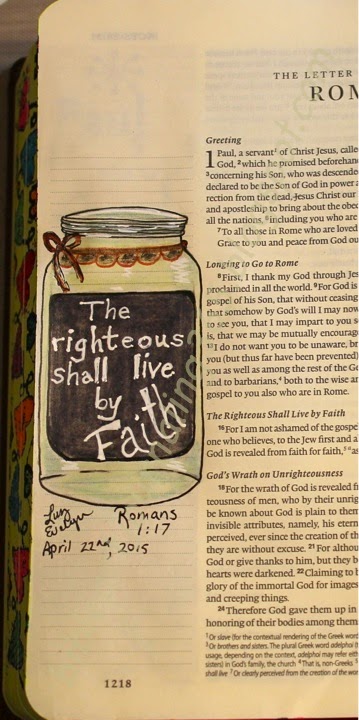 THE LETTER
ROM
Greeting
1 Paul, a servant¹ of Christ Jesus, calle
God, ²which he promised beforehan
³concerning his Son, who was descende
declared to be the Son of God in power a
rection from the dead, Jesus Christ our
and apostleship to bring about the obed
all the nations, ⁶including you who are
⁷To all those in Rome who are loved
Grace to you and peace from God ou
Longing to Go to Rome
⁸First, I thank my God through Jes
proclaimed in all the world. ⁹For God is
gospel of his Son, that without ceasing
that somehow by God's will I may now
to see you, that I may impart to you s
is, that we may be mutually encourage
I do not want you to be unaware, br
you (but thus far have been prevented)
you as well as among the rest of the Ge
and to barbarians,⁴ both to the wise an
gospel to you also who are in Rome.
The Righteous Shall Live by Faith
¹⁶For I am not ashamed of the gospe
one who believes, to the Jew first and a
God is revealed from faith for faith,⁵ ⁶as
God's Wrath on Unrighteousness
¹⁸For the wrath of God is revealed fr
teousness of men, who by their unrig
be known about God is plain to them
invisible attributes, namely, his etern
perceived, ever since the creation of th
they are without excuse. ²¹For althou
God or give thanks to him, but they b
hearts were darkened. ²²Claiming to b
glory of the immortal God for images
and creeping things.
²⁴Therefore God gave them up in
honoring of their bodies among them
¹ Or slave (for the contextual rendering of the Greek word
³ Or brothers and sisters. The plural Greek word adelphoi (t
usage, depending on the context, adelphoi may refer eith
sisters) in God's family, the church ⁴ That is, non-Greeks
shall live ⁷ Or clearly perceived from the creation of the w
The
righteous
shall live
by
Faith
Luz
Evelyn
Romans
1:17
April 22nd, 2015
1218